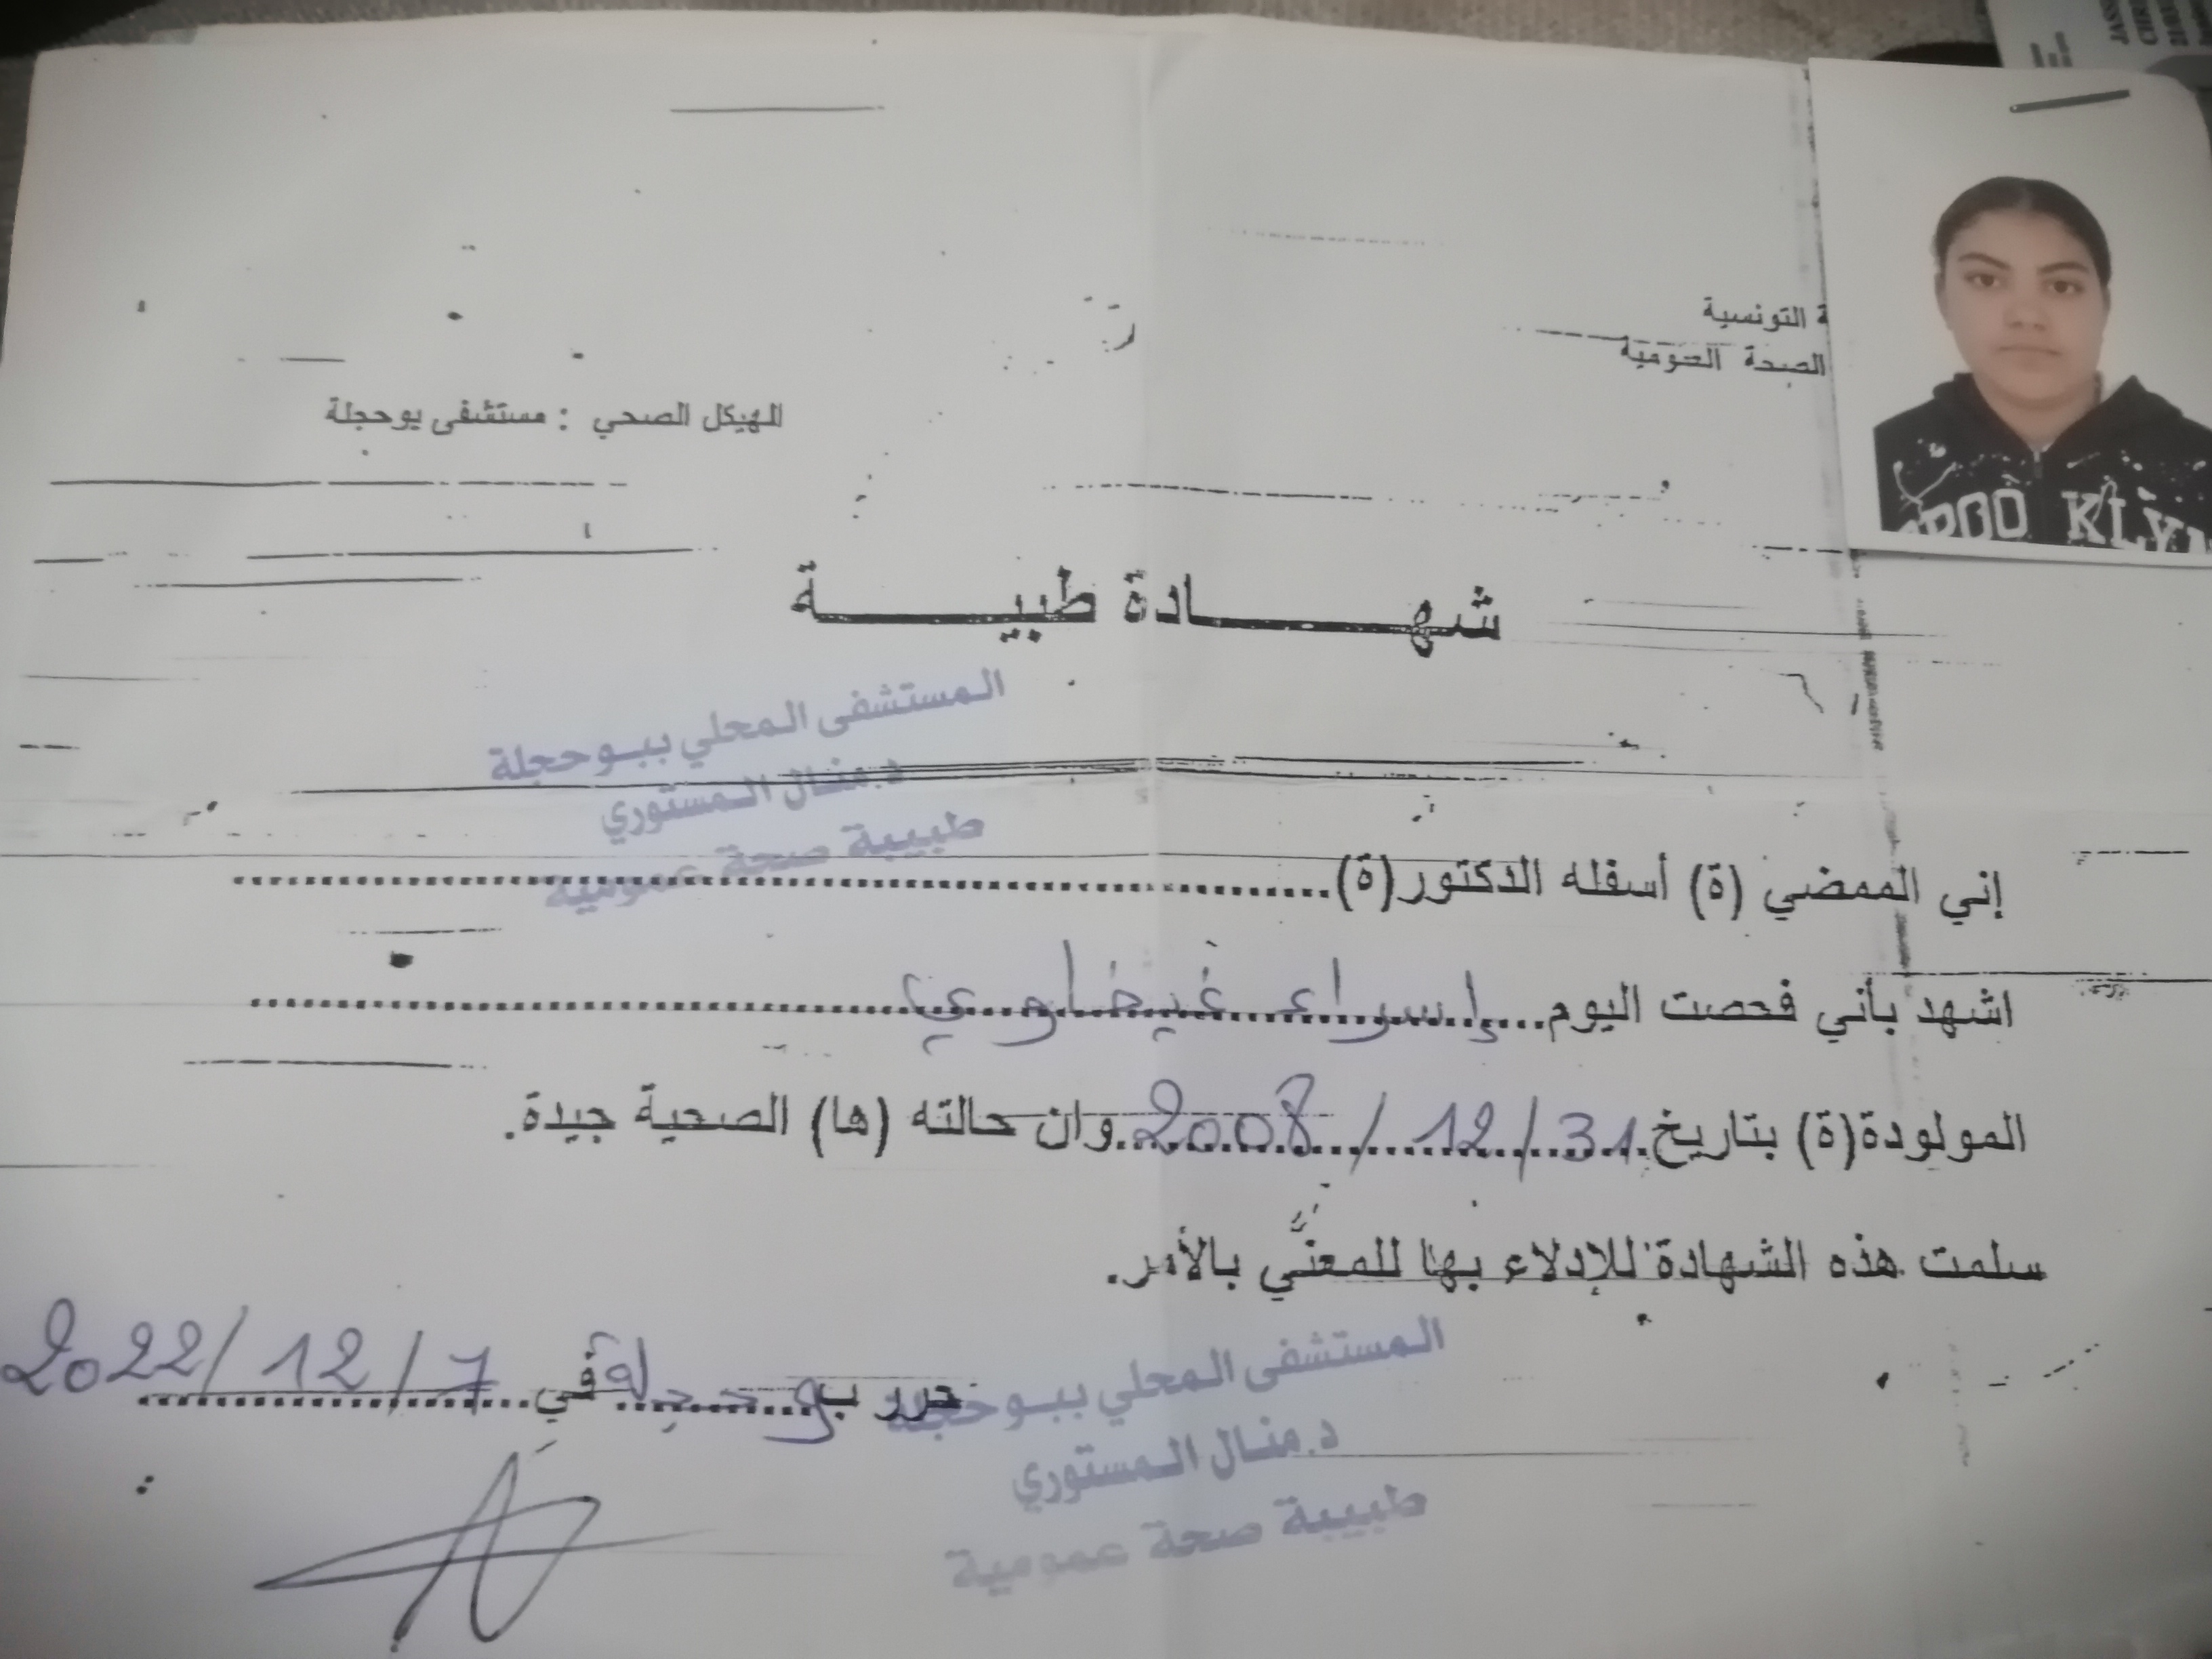 ة التونسية
الصحة العمومية
الهيكل الصحي : مستشفى بوحجلة
شهـــــادة طبيـــــة
المستشفى المحلي ببوحجلة
د.منال المستوري
طبيبة صحة عمومية
إني الممضي (ة) أسفله الدكتور(ة)
اشهد بأني فحصت اليوم إسراء غيضاوي
المولودة(ة) بتاريخ 31/12/2008 وان حالته (ها) الصحية جيدة.
سلمت هذه الشهادة للإدلاء بها للمعني بالأمر.
حرر ب وحجلة في 7/12/2022
المستشفى المحلي ببوحجلة
د.منال المستوري
طبيبة صحة عمومية